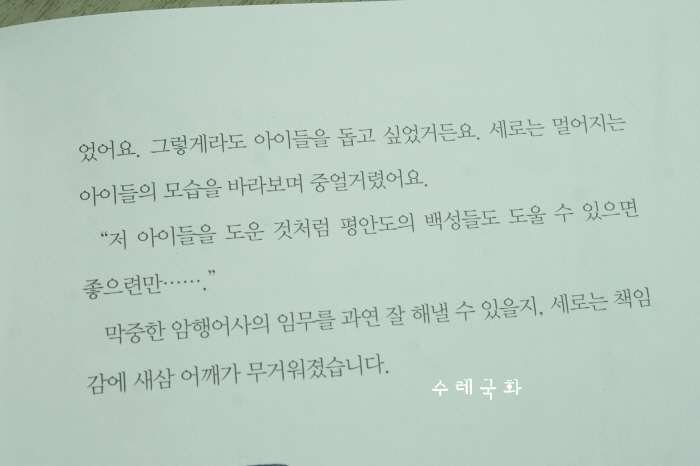 었어요. 그렇게라도 아이들을 돕고 싶었거든요. 세로는 멀어지는
아이들의 모습을 바라보며 중얼거렸어요.
“저 아이들을 도운 것처럼 평안도의 백성들도 도울 수 있으면
좋으련만…….”
막중한 암행어사의 임무를 과연 잘 해낼 수 있을지, 세로는 책임
감에 새삼 어깨가 무거워졌습니다.
수레국화